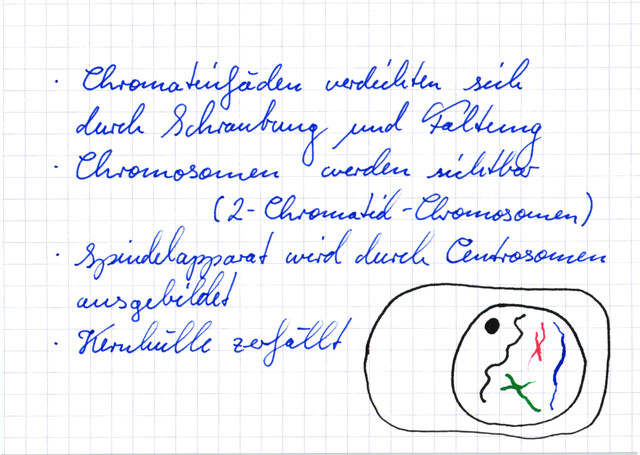 · Chromatinfäden verdichten sich
durch Schraubung und Faltung
· Chromosomen werden sichtbar
(2-Chromatid-Chromosomen)
· Spindelapparat wird durch Centrosomen
ausgebildet
· Kernhülle zerfällt